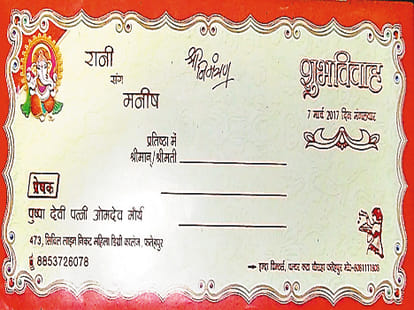 रानी
संग
मनीष
श्री निमंत्रण
शुभविवाह
7 मार्च 2017 दिन मंगलवार
प्रतिष्ठा में
श्रीमान्/श्रीमती
प्रेषक
पुष्पा देवी पत्नी ओमदेव मौर्य
473, सिविल लाइन निकट महिला डिग्री कालेज, फतेहपुर
8853726078
फतेहपुर